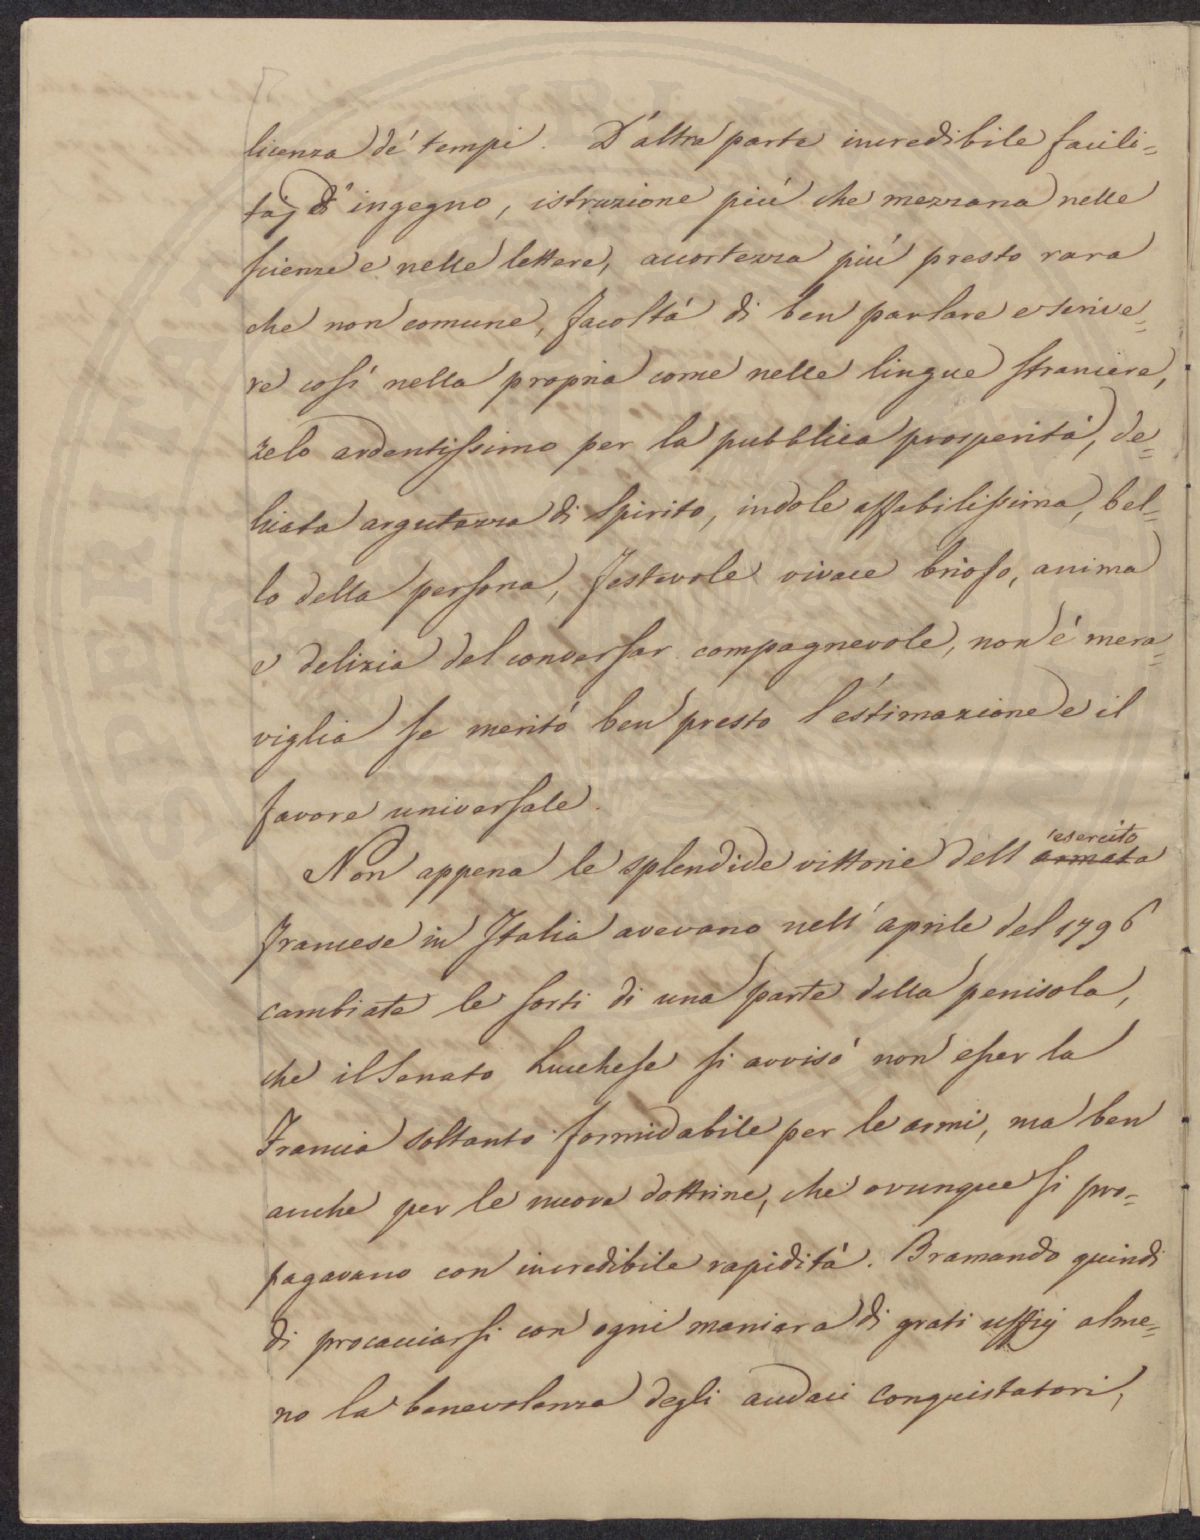 licenza de' tempi. D'altra parte incredibile facili=
tà, d'ingegno, istruzione più che mezzana nelle
scienze e nelle lettere, accortezza più presto rara
che non comune, facoltà di ben parlare e scrive=
re così nella propria come nelle lingue straniere,
zelo ardentissimo per la pubblica prosperità, de=
licata argutezza di spirito, indole affabilissima, bel=
lo della persona, festevole vivace brioso, anima
e delizia del conversar compagnevole, non é mera=
viglia se meritò ben presto l'estimazione e il
favore universale.
Non appena le splendide vittorie dell'armata esercito
francese in Italia avevano nell'aprile del 1796
cambiate le sorti di una parte della penisola,
che il Senato Lucchese si avvisò non esser la
Francia soltanto formidabile per le armi, ma ben
anche per le nuove dottrine, che ovunque si pro=
pagavano con incredibile rapidità. Bramando quindi
di procacciarsi con ogni maniera di grati uffizj alme=
no la benevolenza degli audaci conquistatori,